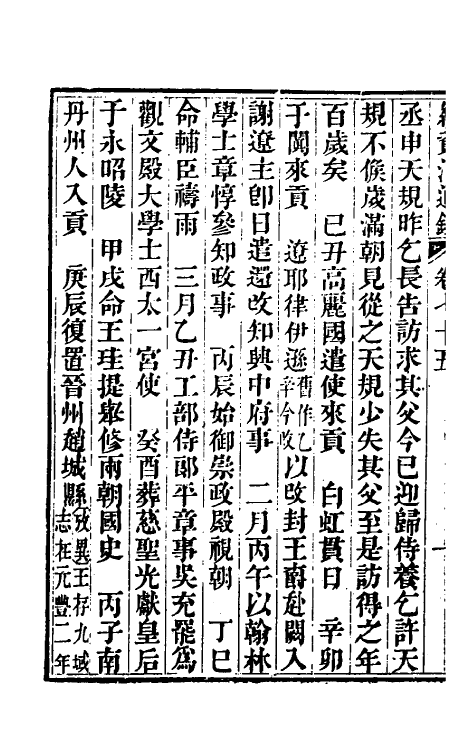 續資治通鑑 卷七十五
丞申天規昨乞長告訪求其父今已迎歸侍養乞許天
規不俟歲滿朝見從之天規少失其父至是訪得之年
百歲矣　己丑高麗國遣使來貢　白虹貫日　辛卯
于闐來貢　遼耶律伊遜舊作乙辛今改以改封王爵赴闕入
謝遼主卽日遣還改知興中府事　二月丙午以翰林
學士章惇參知政事　丙辰始御崇政殿視朝　丁巳
命輔臣禱雨　三月乙丑工部侍郎平章事吳充罷爲
觀文殿大學士西太一宮使　癸酉葬慈聖光獻皇后
于永昭陵　甲戌命王珪提舉修兩朝國史　丙子南
丹州人入貢　庚辰復置晉州趙城縣攷異王存九域志在元豐二年